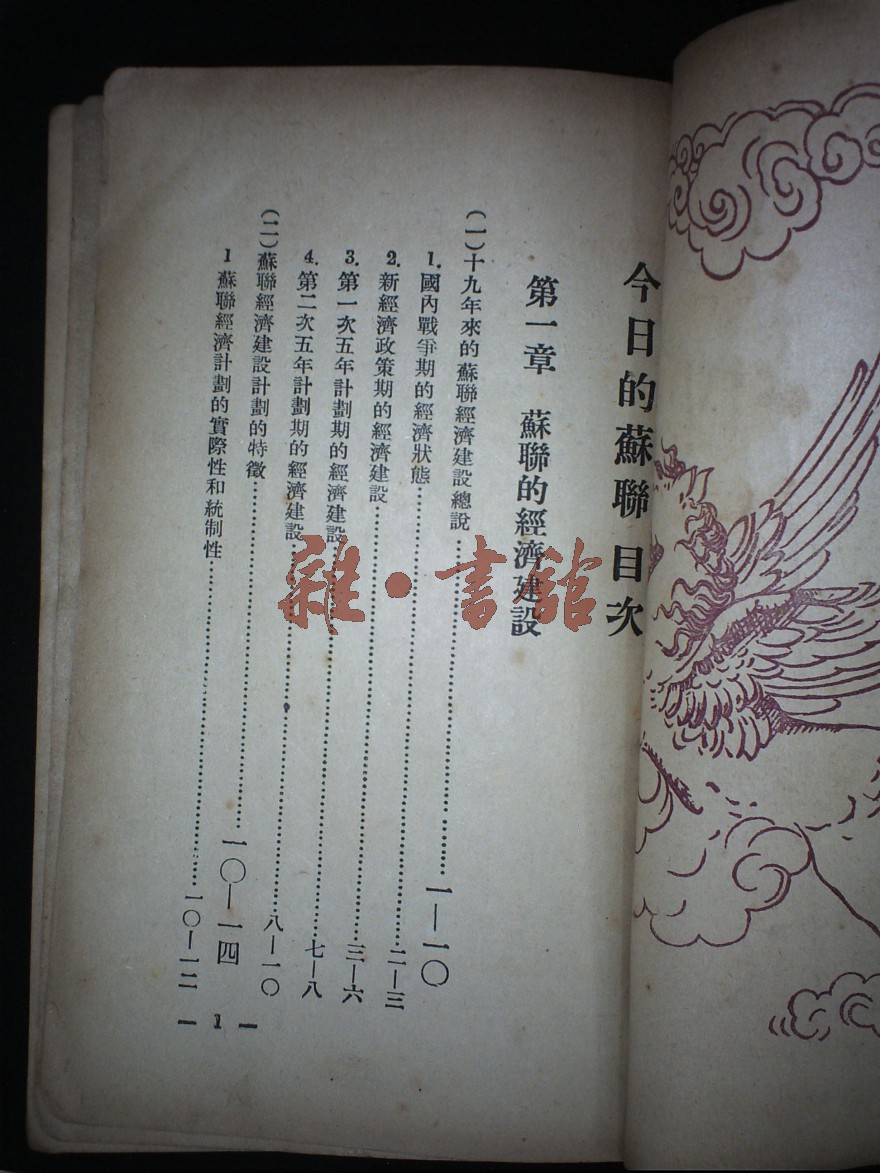 今日的蘇聯 目次
第一章 蘇聯的經濟建設
(一)十九年來的蘇聯經濟建設總說……………………一—一〇
1.國內戰爭期的經濟狀態……………………二—三
2.新經濟政策期的經濟建設……………………三—六
3.第一次五年計劃期的經濟建設……………………七—八
4.第二次五年計劃期的經濟建設……………………八—一〇
(二)蘇聯經濟建設計劃的特徵……………………一〇—一四
1蘇聯經濟計劃的實際性和統制性……………………一〇—一二
— 1 —
雜·書館